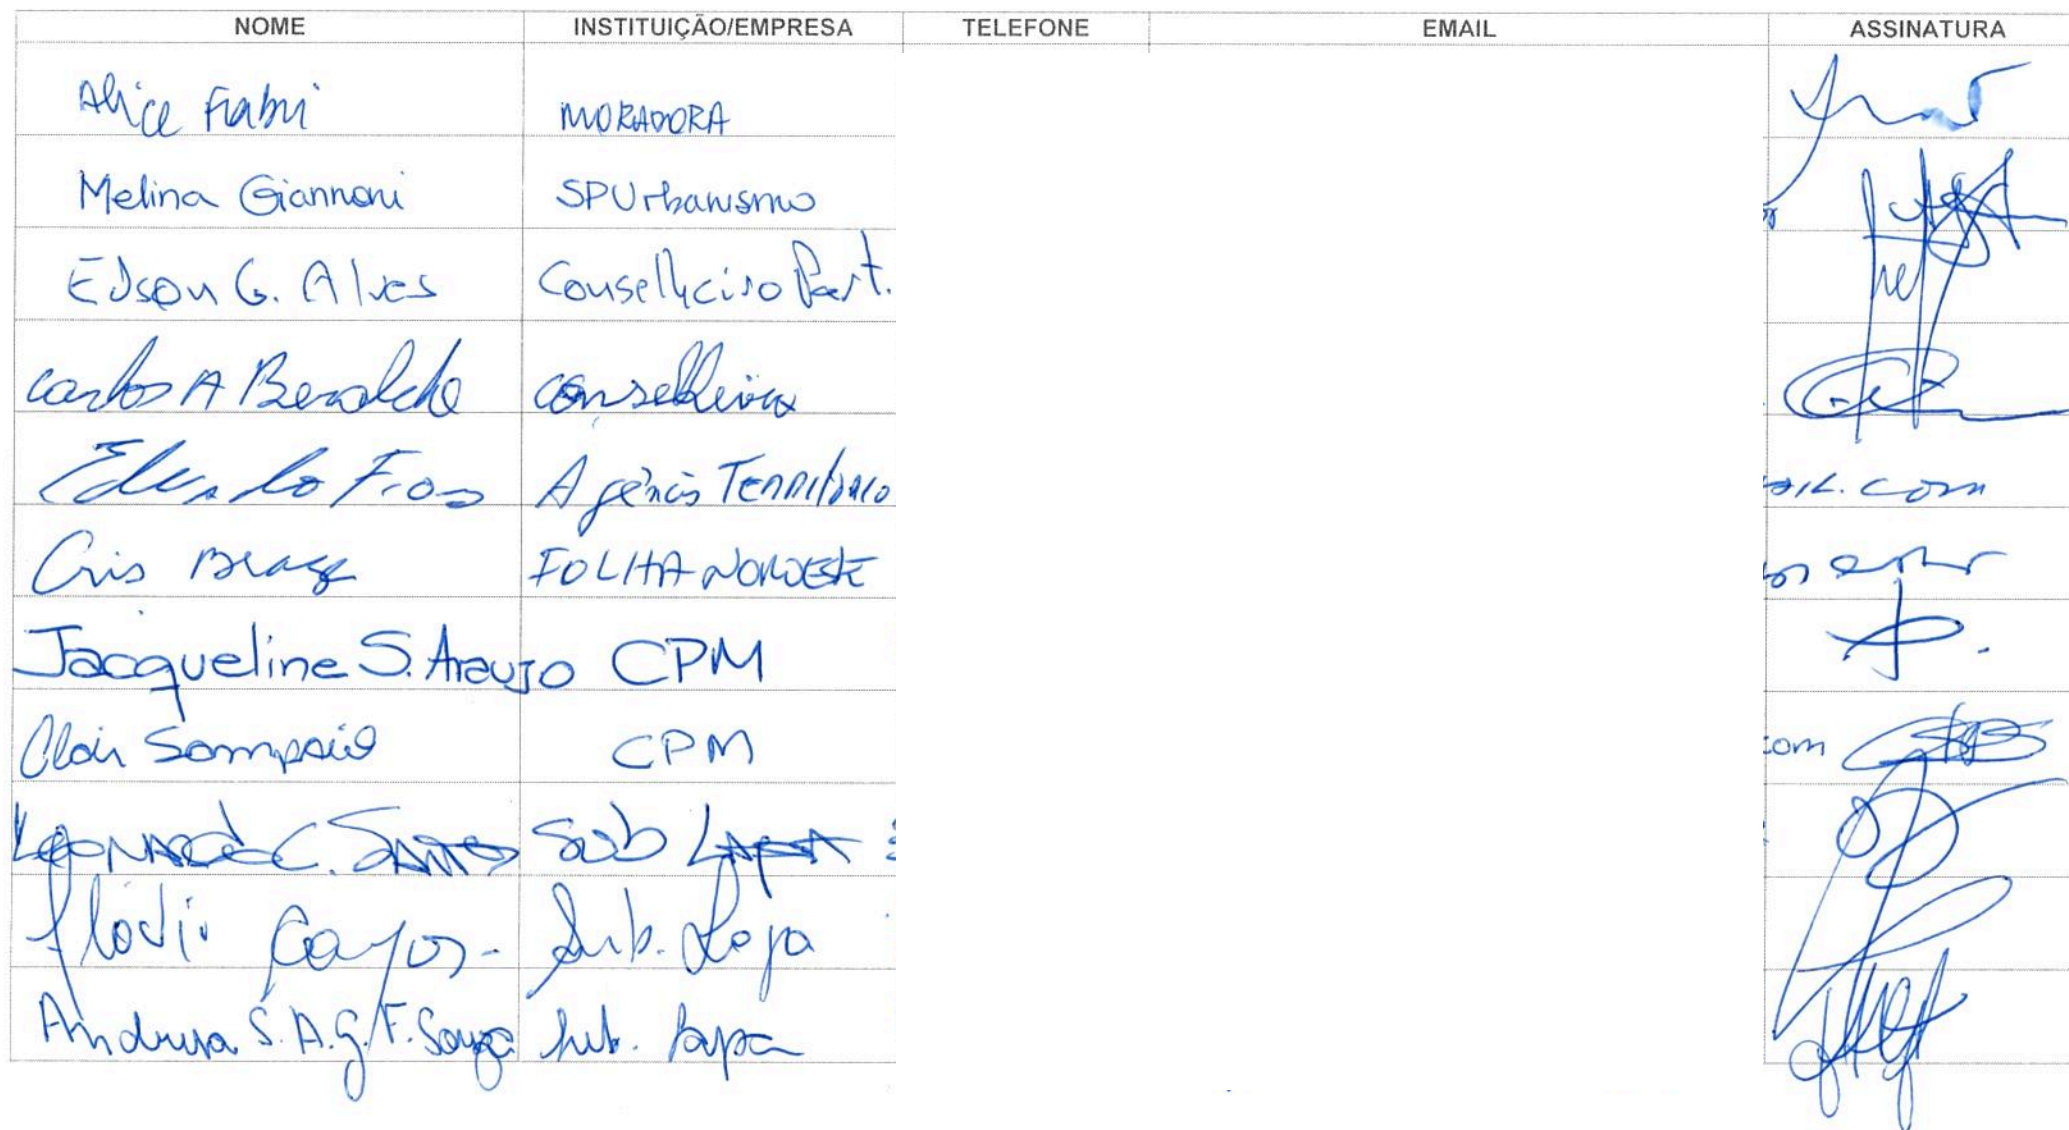 NOME INSTITUIÇÃO/EMPRESA TELEFONE EMAIL ASSINATURA
Alice Fiabri MORADORA
Melina Giannoni SPUrbanismo
Edson G. Alves Conselheiro Part.
Carlos A Beraldo conselheiro
Eduardo Fiora Agência Território
Cris Braga FOLHA NOROESTE
Jacqueline S. Araujo CPM
Clair Sampaio CPM com
Leonardo C. Santos Sub LAPA
Sub. Lapa
Andrea S. A. G. F. Souza Sub. Lapa